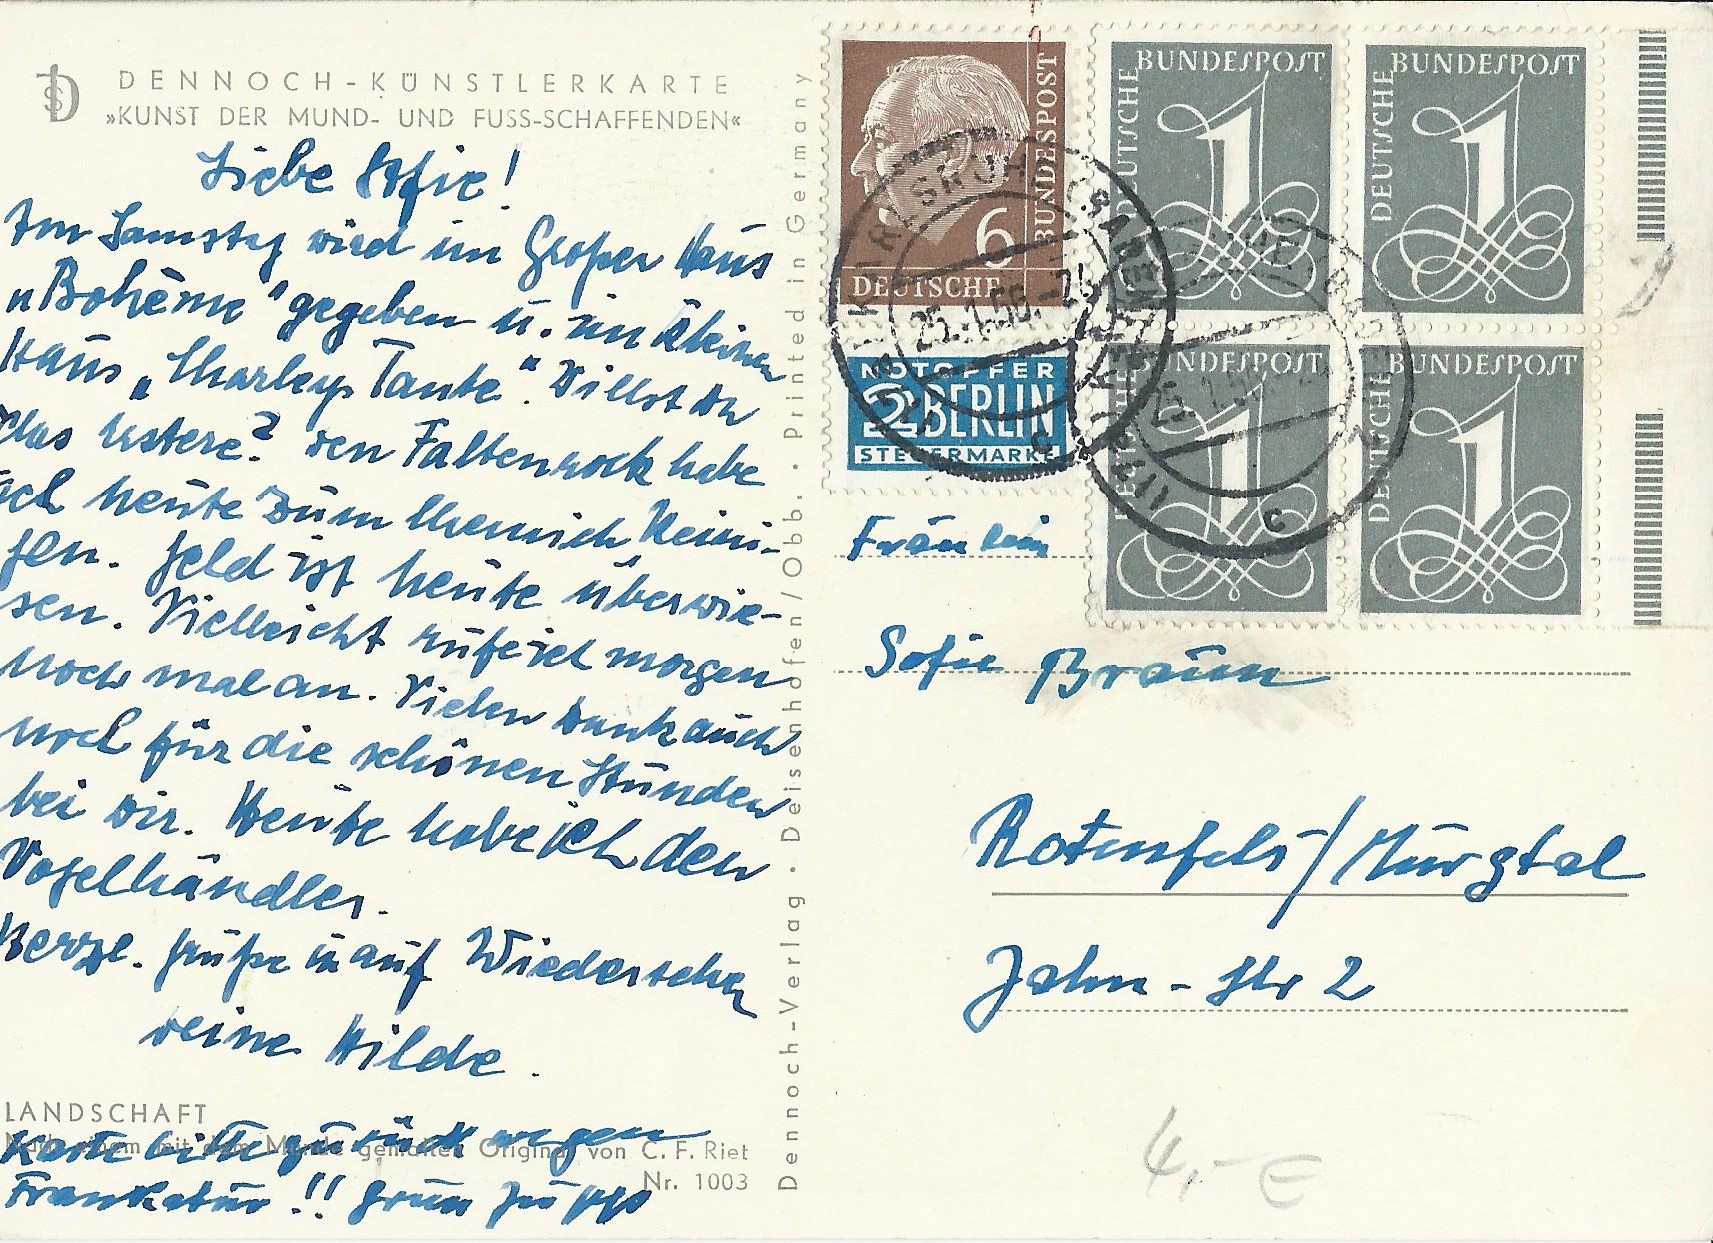 DENNOCH-KÜNSTLERKARTE
»KUNST DER MUND- UND FUSS-SCHAFFENDEN«
Liebe Sofie!
Am Samstag wird im Großen Haus
"Bohème" gegeben u. im Kleinen
Haus "Charleys Tante". Willst Du
das? Den Faltenrock habe
ich heute zum chemisch Reini-
gen. Geld ist heute überwie-
sen. Vielleicht rufe ich morgen
noch mal an. Vielen Dank auch
noch für die schönen Stunden
bei Dir. Heute habe ich den
Vogelhändler.
Herzl. Grüße u. auf Wiedersehen
Deine Hilde.
LANDSCHAFT
Nach einem mit dem Munde gemalten Original von C. F. Riet
Nr. 1003
Karte bitte zurück wegen
Frankatur!!
Dennoch-Verlag · Deisenhofen/Obb. · Printed in Germany
6
DEUTSCHE
BUNDESPOST
NOTOPFER
2 BERLIN
STEUERMARKE
DEUTSCHE BUNDESPOST
1
DEUTSCHE BUNDESPOST
1
DEUTSCHE BUNDESPOST
1
DEUTSCHE BUNDESPOST
1
KARLSRUHE
c
c
Fräulein
Sofie Braun
Rotenfels/Murgtal
Jahn-Str 2
4,- €